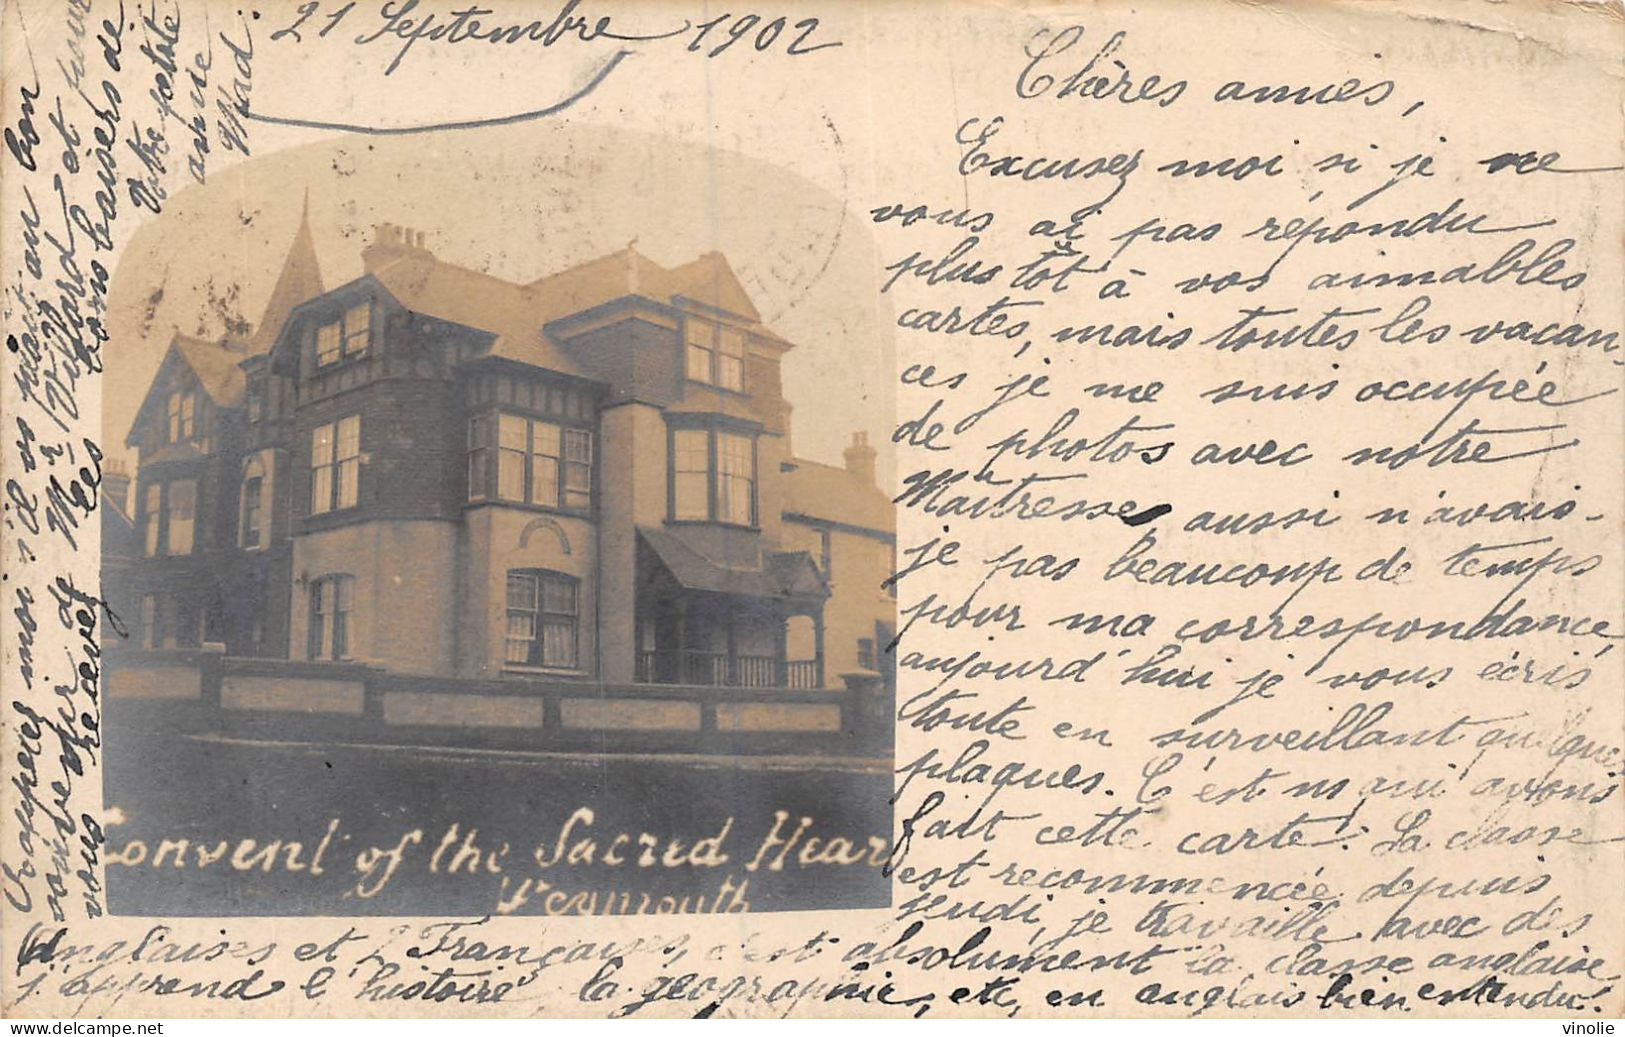 21 Septembre 1902
Chères amies,
Excusez moi si je ne
vous ai pas répondu
plus tôt à vos aimables
cartes, mais toutes les vacan-
ces je me suis occupée
de photos avec notre
Maîtresse, aussi n'avais-
je pas beaucoup de temps
pour ma correspondance,
aujourd'hui je vous écris
toute en surveillant quelques
plaques. C'est ns qui avons
fait cette carte. La classe
est recommencée depuis
jeudi, je travaille avec des
Anglaises et 2 Françaises, c'est absolument la classe anglaise
j'apprend l'histoire, la géographie, etc, en anglais bien entendu!
Rappelez moi s'il vs plait au bon
souvenir de Mr Villard et pour
vous recevez les bons baisers de
Votre petite
amie
Mad.
Convent of the Sacred Hear
Weymouth
vinolie